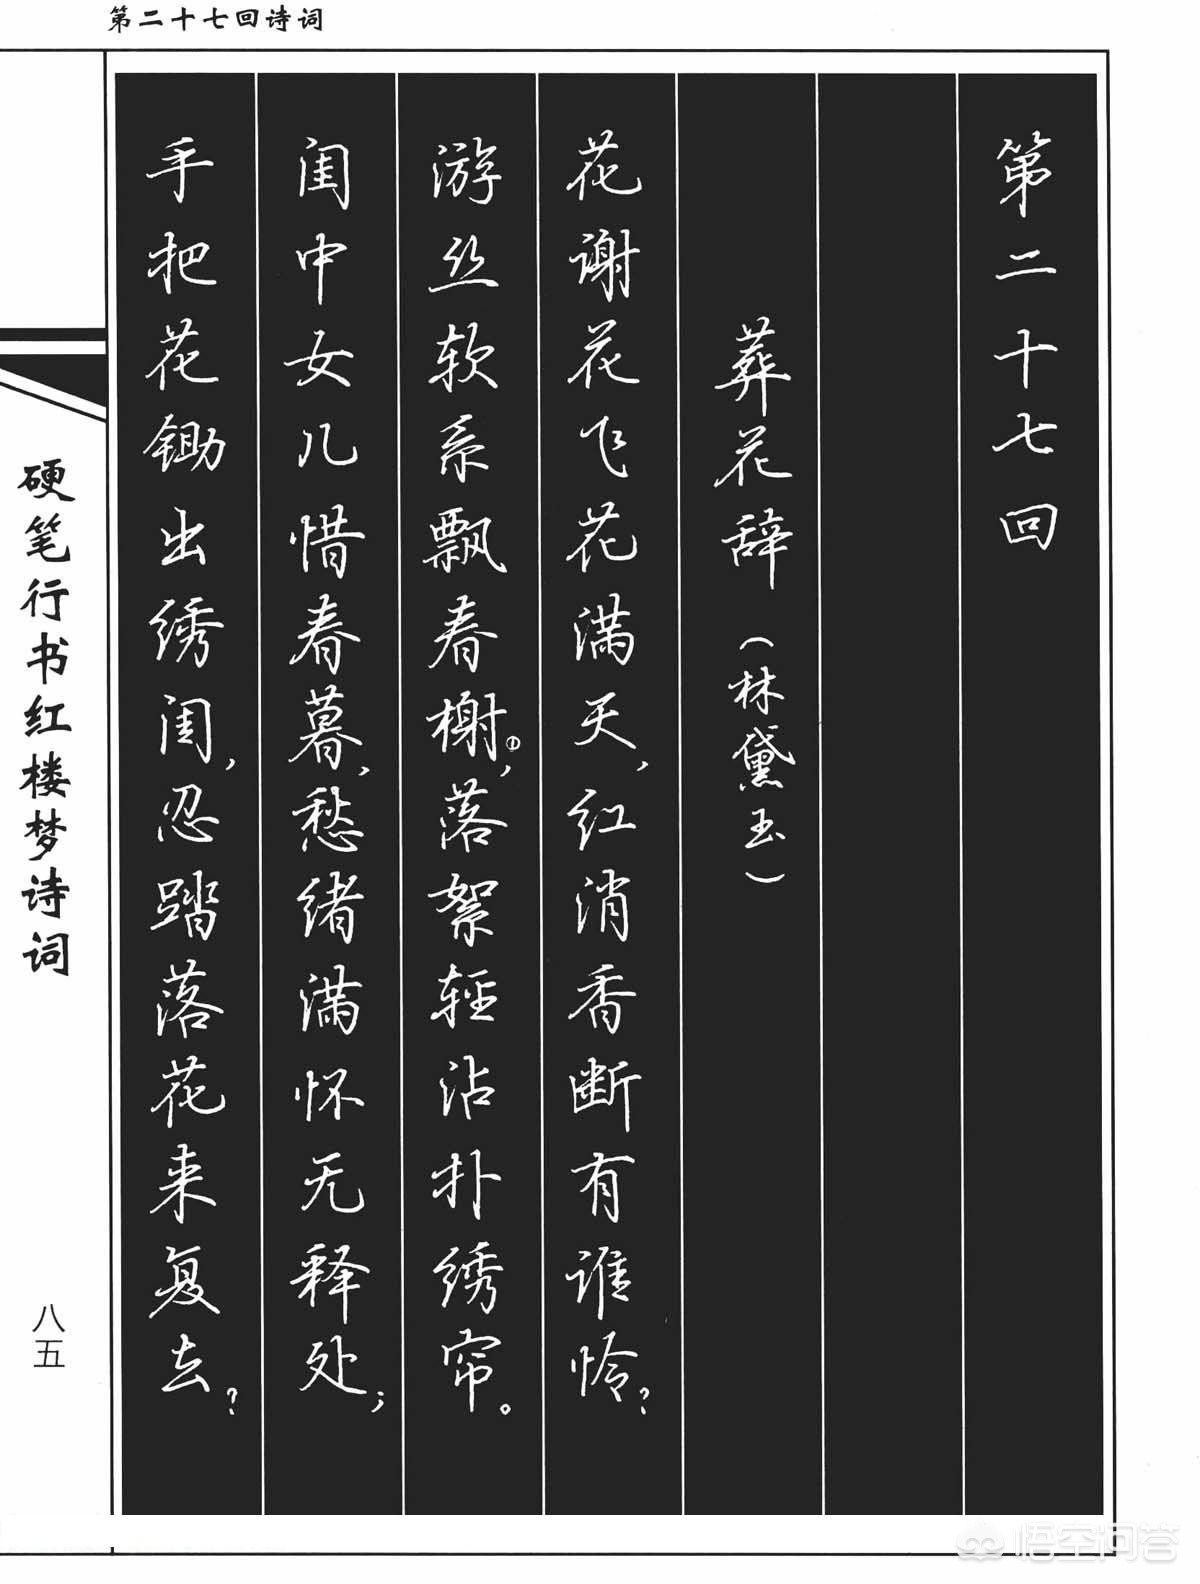 第二十七回诗词
第二十七回
葬花辞（林黛玉）
花谢花飞花满天，红消香断有谁怜？
游丝软系飘春榭①，落絮轻沾扑绣帘。
闺中女儿惜春暮，愁绪满怀无释处；
手把花锄出绣闺，忍踏落花来复去？
硬笔行书红楼梦诗词
八五
悟空问答